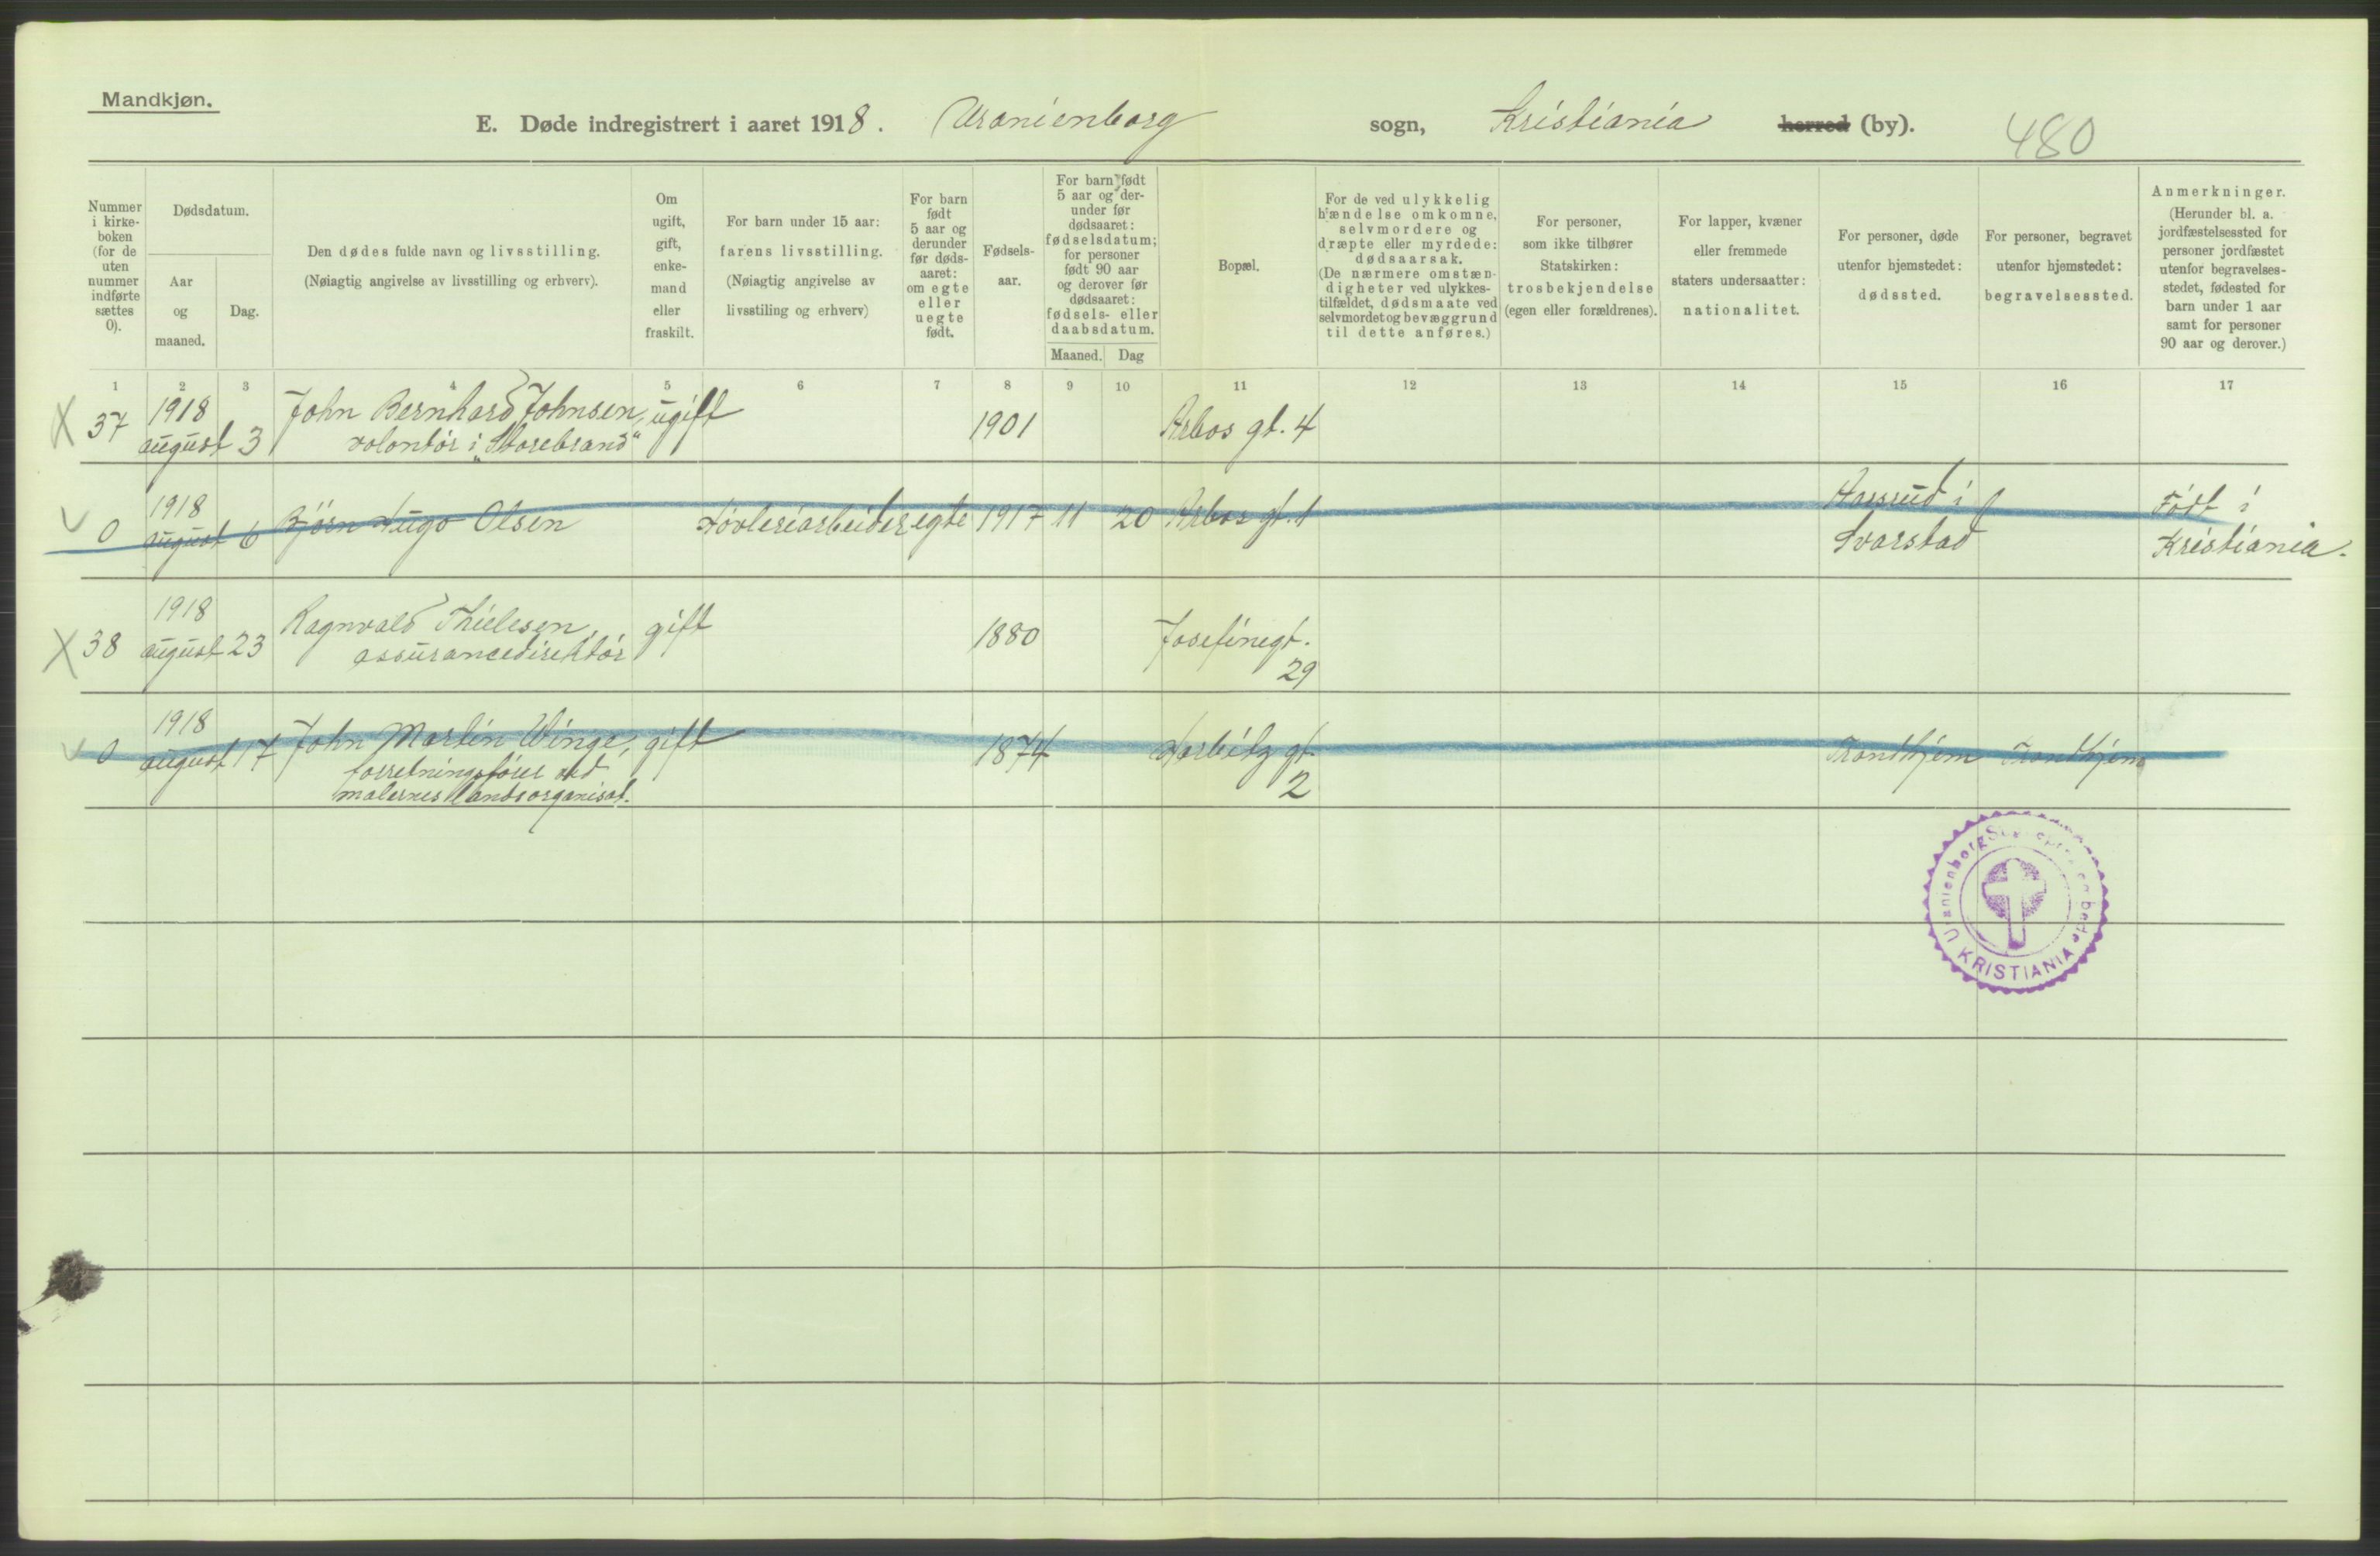 Mandkjøn.
E. Døde indregistrert i aaret 1918. Uranienborg sogn, Kristiania herred (by). 480
Nummer i kirke-boken (for de uten nummer indførte sættes 0).
Dødsdatum.
Aar og maaned.
Dag.
Den dødes fulde navn og livsstilling.
(Nøiagtig angivelse av livsstilling og erhverv).
Om ugift, gift, enke-mand eller fraskilt.
For barn under 15 aar: farens livsstilling.
(Nøiagtig angivelse av livsstiling og erhverv)
For barn født 5 aar og derunder før døds-aaret: om egte eller uegte født.
Fødsels-aar.
For barn født 5 aar og der-under før dødsaaret: fødselsdatum; for personer født 90 aar og derover før dødsaaret: fødsels- eller daabsdatum.
Maaned. Dag
Bopæl.
For de ved ulykkelig hændelse omkomne, selvmordere og dræpte eller myrdede: dødsaarsak.
(De nærmere omstæn-digheter ved ulykkes-tilfældet, dødsmaate ved selvmordet og bevæggrund til dette anføres.)
For personer, som ikke tilhører Statskirken: trosbekjendelse (egen eller forældrenes).
For lapper, kvæner eller fremmede staters undersaatter: nationalitet.
For personer, døde utenfor hjemstedet: dødssted.
For personer, begravet utenfor hjemstedet: begravelsessted.
Anmerkninger.
(Herunder bl. a. jordfæstelsessted for personer jordfæstet utenfor begravelses-stedet, fødested for barn under 1 aar samt for personer 90 aar og derover.)
1 2 3 4 5 6 7 8 9 10 11 12 13 14 15 16 17
X 37 1918 august 3 John Bernhard Johnsen, ugift 1901 Arbos gt. 4
volontør i „Storebrand"
0 1918 august 6 Bjørn Hugo Olsen Høvleriarbeider egte 1917 11 20 Arbos gt. 1 i Født i
Svarstad Kristiania.
X 38 1918 august 23 Ragnvald Thielesen, gift 1880 Josefinegt. 29
assurancedirektør
0 1918 august 17 John Martin Winge, gift 1874 Harbitz gt. 2 Trondhjem Trondhjem
forretningsfører ved
malernes landsorganisat.
Uranienborg
KRISTIANIA